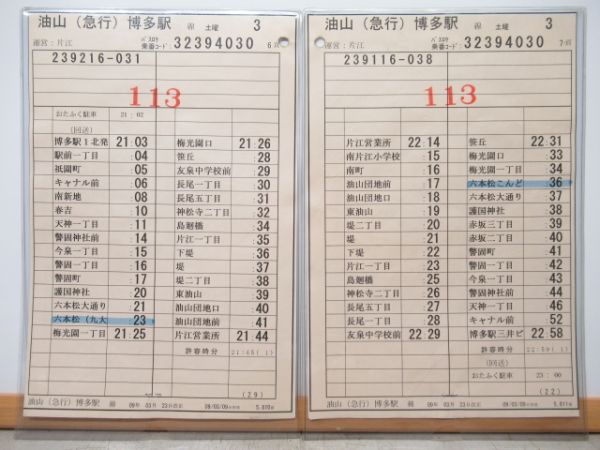 油山（急行）博多駅 土曜 3
運営：片江 乗番コード: 32394030 6
239216-031
113
おたふく駐車 21:02
(回送)
博多駅1北発 21:03
駅前一丁目 :04
祇園町 :05
キャナル前 :06
南新地 :08
春吉 :10
天神一丁目 :11
警固神社前 :14
今泉一丁目 :15
警固一丁目 :16
警固町 :17
護国神社 :20
六本松大通り :21
六本松（九大 :23
梅光園一丁目 21:25
梅光園口 21:26
笹丘 :28
友泉中学校前 :29
長尾一丁目 :30
長尾五丁目 :31
神松寺二丁目 :32
島廻橋 :34
片江一丁目 :35
下堤 :36
堤 :37
堤二丁目 :38
東油山 :39
油山団地口 :40
油山団地前 :41
片江営業所 21:44
許容時分
(29)
油山（急行）博多駅 09年 03月 23日改正
油山（急行）博多駅 土曜 3
運営：片江 乗番コード: 32394030 7
239116-038
113
片江営業所 22:14
南片江小学校 :15
南町 :16
油山団地前 :17
油山団地口 :18
東油山 :19
堤二丁目 :20
堤 :21
下堤 :22
片江一丁目 :23
島廻橋 :25
神松寺二丁目 :26
長尾五丁目 :27
長尾一丁目 :28
友泉中学校前 22:29
笹丘 22:31
梅光園口 :33
梅光園一丁目 :34
六本松こんど :36
六本松大通り :37
護国神社 :38
赤坂三丁目 :39
赤坂二丁目 :40
警固町 :41
警固一丁目 :42
今泉一丁目 :43
警固神社前 :44
天神一丁目 :46
キャナル前 :52
博多駅三井ビ 22:58
許容時分
(回送)
おたふく駐車 23:00
(22)
油山（急行）博多駅 09年 03月 23日改正